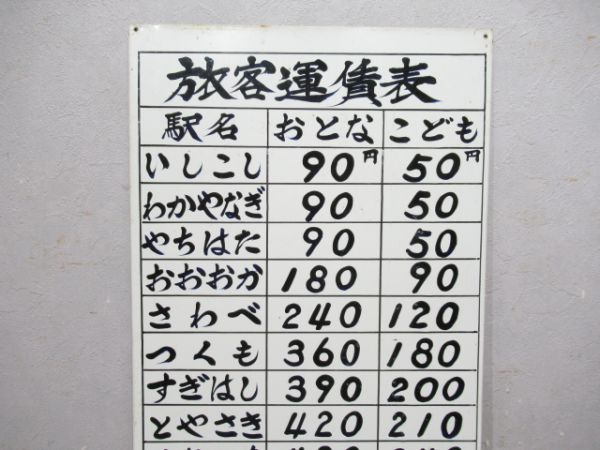 旅客運賃表
駅名 おとな こども
いしこし 90円 50円
わかやなぎ 90 50
やちはた 90 50
おおおか 180 90
さわべ 240 120
つくも 360 180
すぎはし 390 200
とやさき 420 210